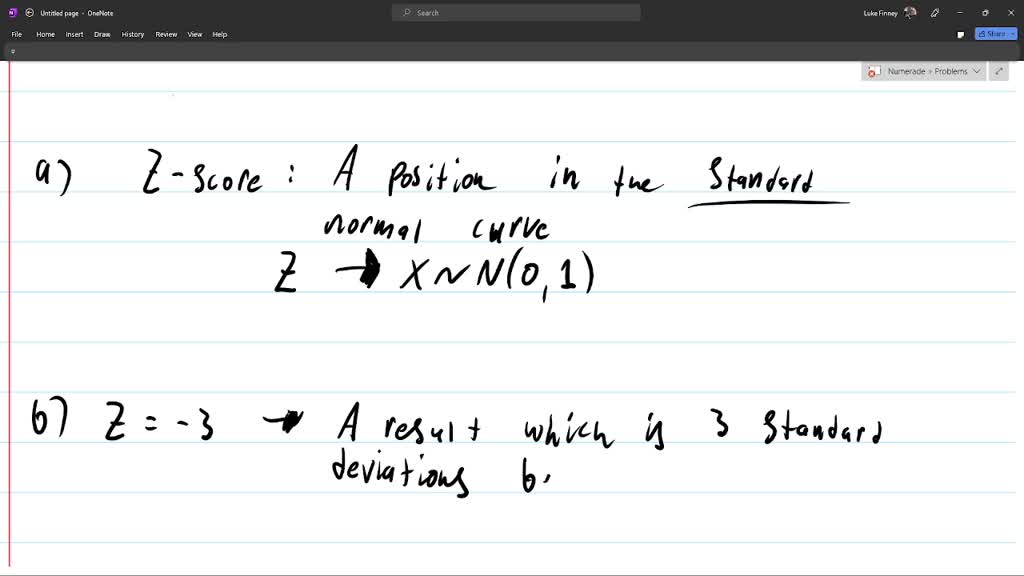 Untitled page - OneNote
Search
Luke Finney
File Home Insert Draw History Review View Help
Share
Numerade » Problems
a) Z-score : A position in the Standard
normal curve
Z → X ~ N(0, 1)
b) Z = -3 → A result which is 3 standard
deviations b